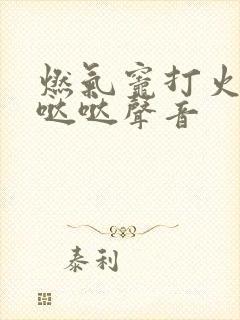 燃氣竈打火
哒哒聲音
泰利